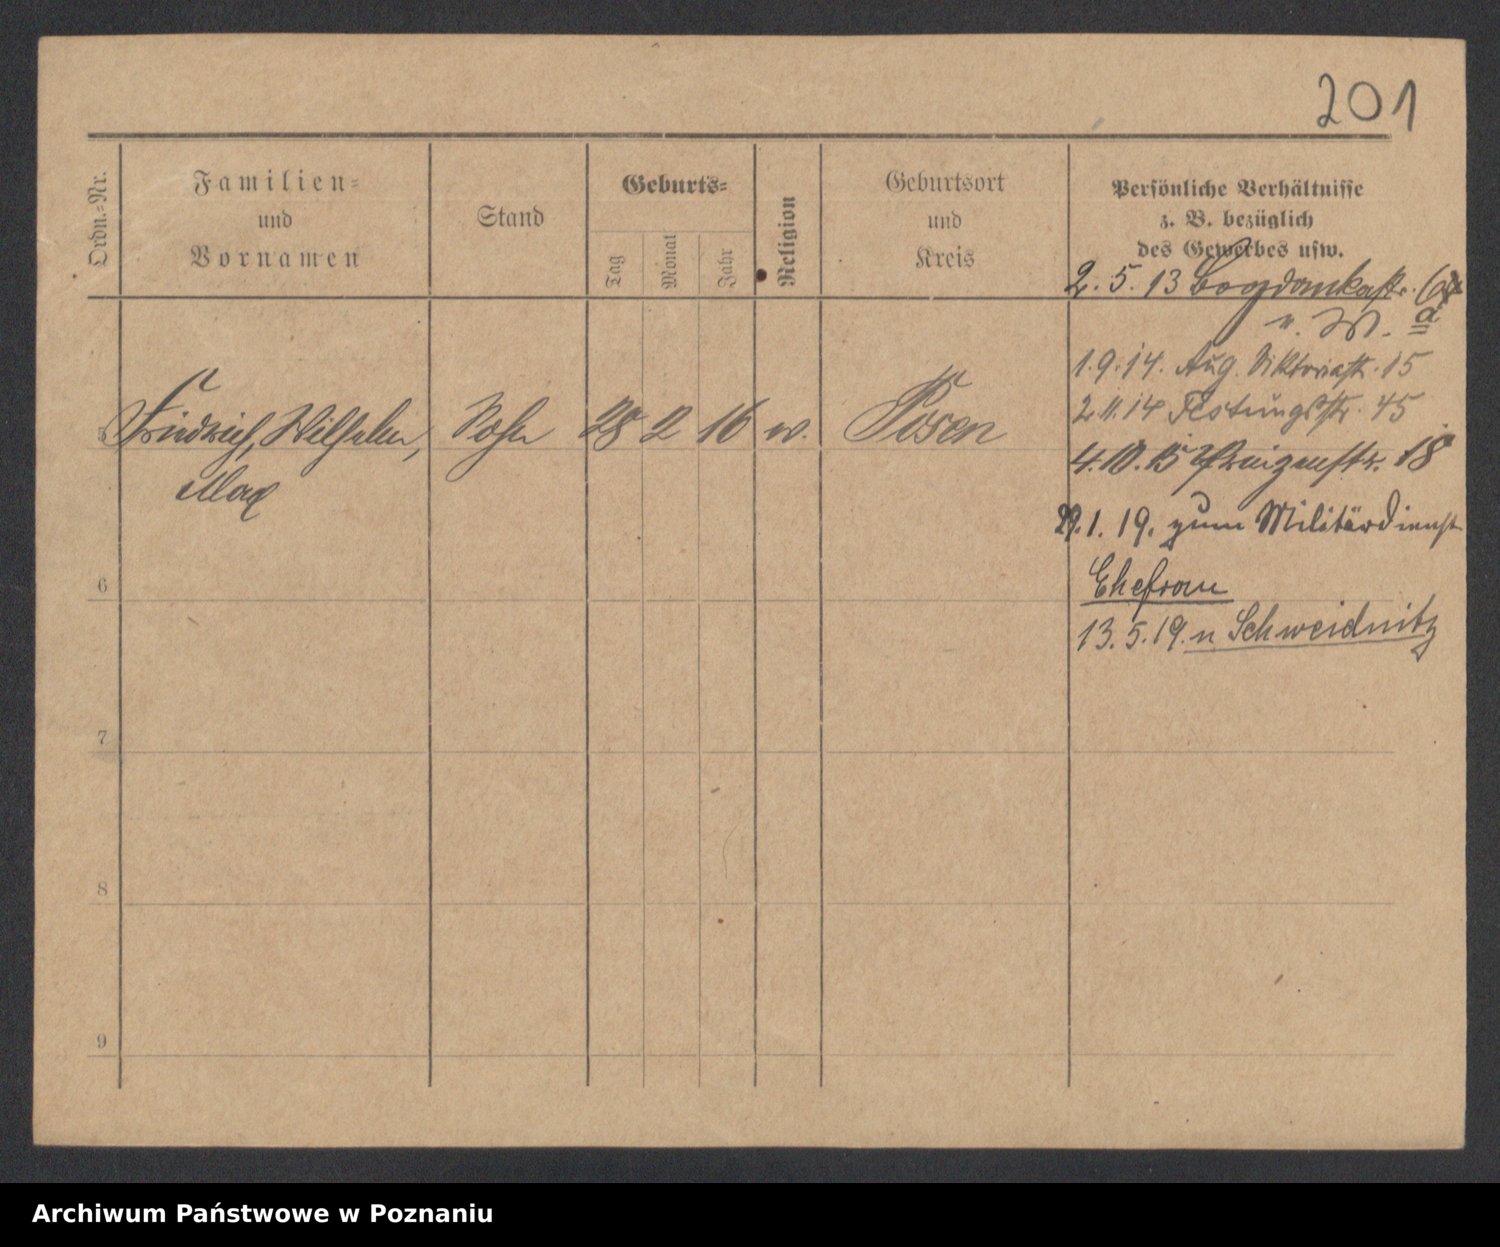 201
Ordn.-Nr.
Familien-
und
Vornamen
Stand
Geburts-
Tag
Monat
Jahr
Religion
Geburtsort
und
Kreis
Persönliche Verhältnisse
z. B. bezüglich
des Gewerbes usw.
2. 5. 13 Bogdankastr.
a
1.9.14. Aug. Viktoriastr. 15
2.11.14 Festungsstr. 45
5 Friedrich, Wilhelm, Sohn 28 2 16 Posen
Max
4.10.15 18
29.1.19. zum Militärdienst
6
Ehefrau
13.5.19. n Schweidnitz
7
8
9
Archiwum Państwowe w Poznaniu